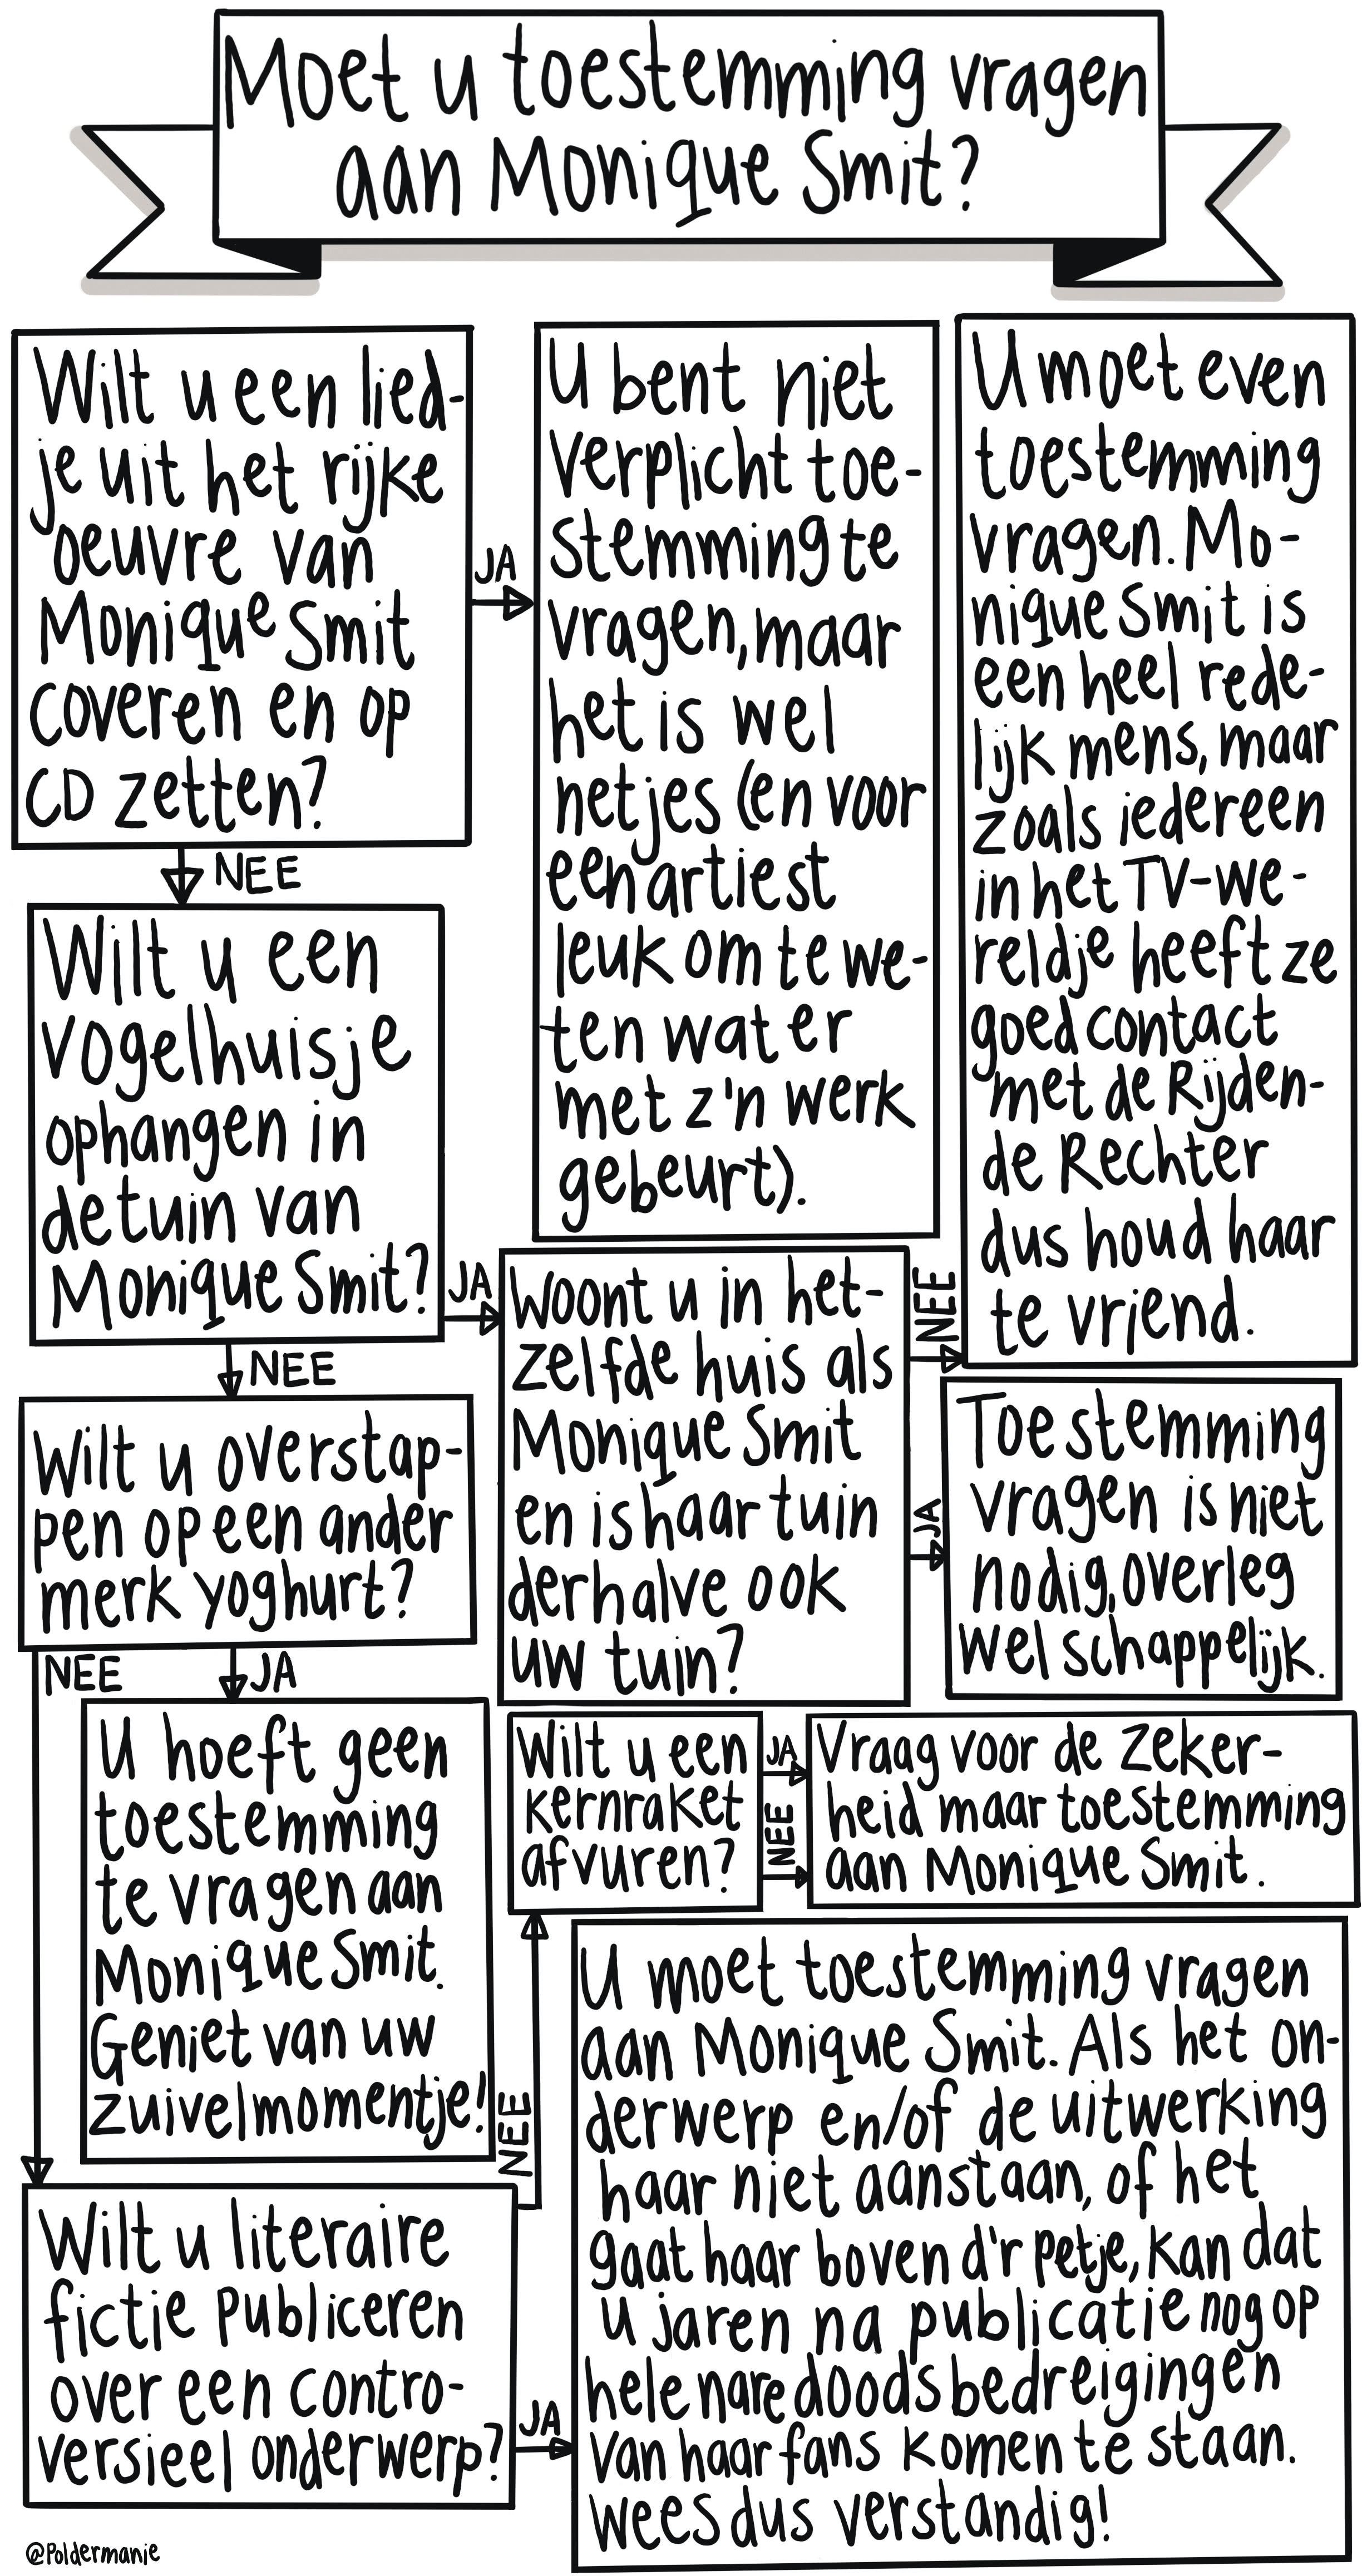 Moet u toestemming vragen
aan Monique Smit?
Wilt u een lied-
je uit het rijke
oeuvre van
Monique Smit
coveren en op
CD zetten?
JA
U bent niet
verplicht toe-
stemming te
vragen, maar
het is wel
netjes (en voor
een artiest
leuk om te we-
ten wat er
met z'n werk
gebeurt).
NEE
Wilt u een
vogelhuisje
ophangen in
de tuin van
Monique Smit?
JA
Woont u in het-
zelfde huis als
Monique Smit
en is haar tuin
derhalve ook
uw tuin?
NEE
U moet even
toestemming
vragen. Mo-
nique Smit is
een heel rede-
lijk mens, maar
zoals iedereen
in het TV-we-
reldje heeft ze
goed contact
met de Rijden-
de Rechter
dus houd haar
te vriend.
JA
Toestemming
vragen is niet
nodig, overleg
wel schappelijk.
NEE
Wilt u overstap-
pen op een ander
merk yoghurt?
NEE
JA
U hoeft geen
toestemming
te vragen aan
Monique Smit.
Geniet van uw
zuivelmomentje!
Wilt u literaire
fictie publiceren
over een contro-
versieel onderwerp?
NEE
Wilt u een
kernraket
afvuren?
JA
NEE
Vraag voor de zeker-
heid maar toestemming
aan Monique Smit.
JA
U moet toestemming vragen
aan Monique Smit. Als het on-
derwerp en/of de uitwerking
haar niet aanstaan, of het
gaat haar boven d'r petje, kan dat
u jaren na publicatie nog op
hele nare doodsbedreigingen
van haar fans komen te staan.
Wees dus verstandig!
@Poldermanie